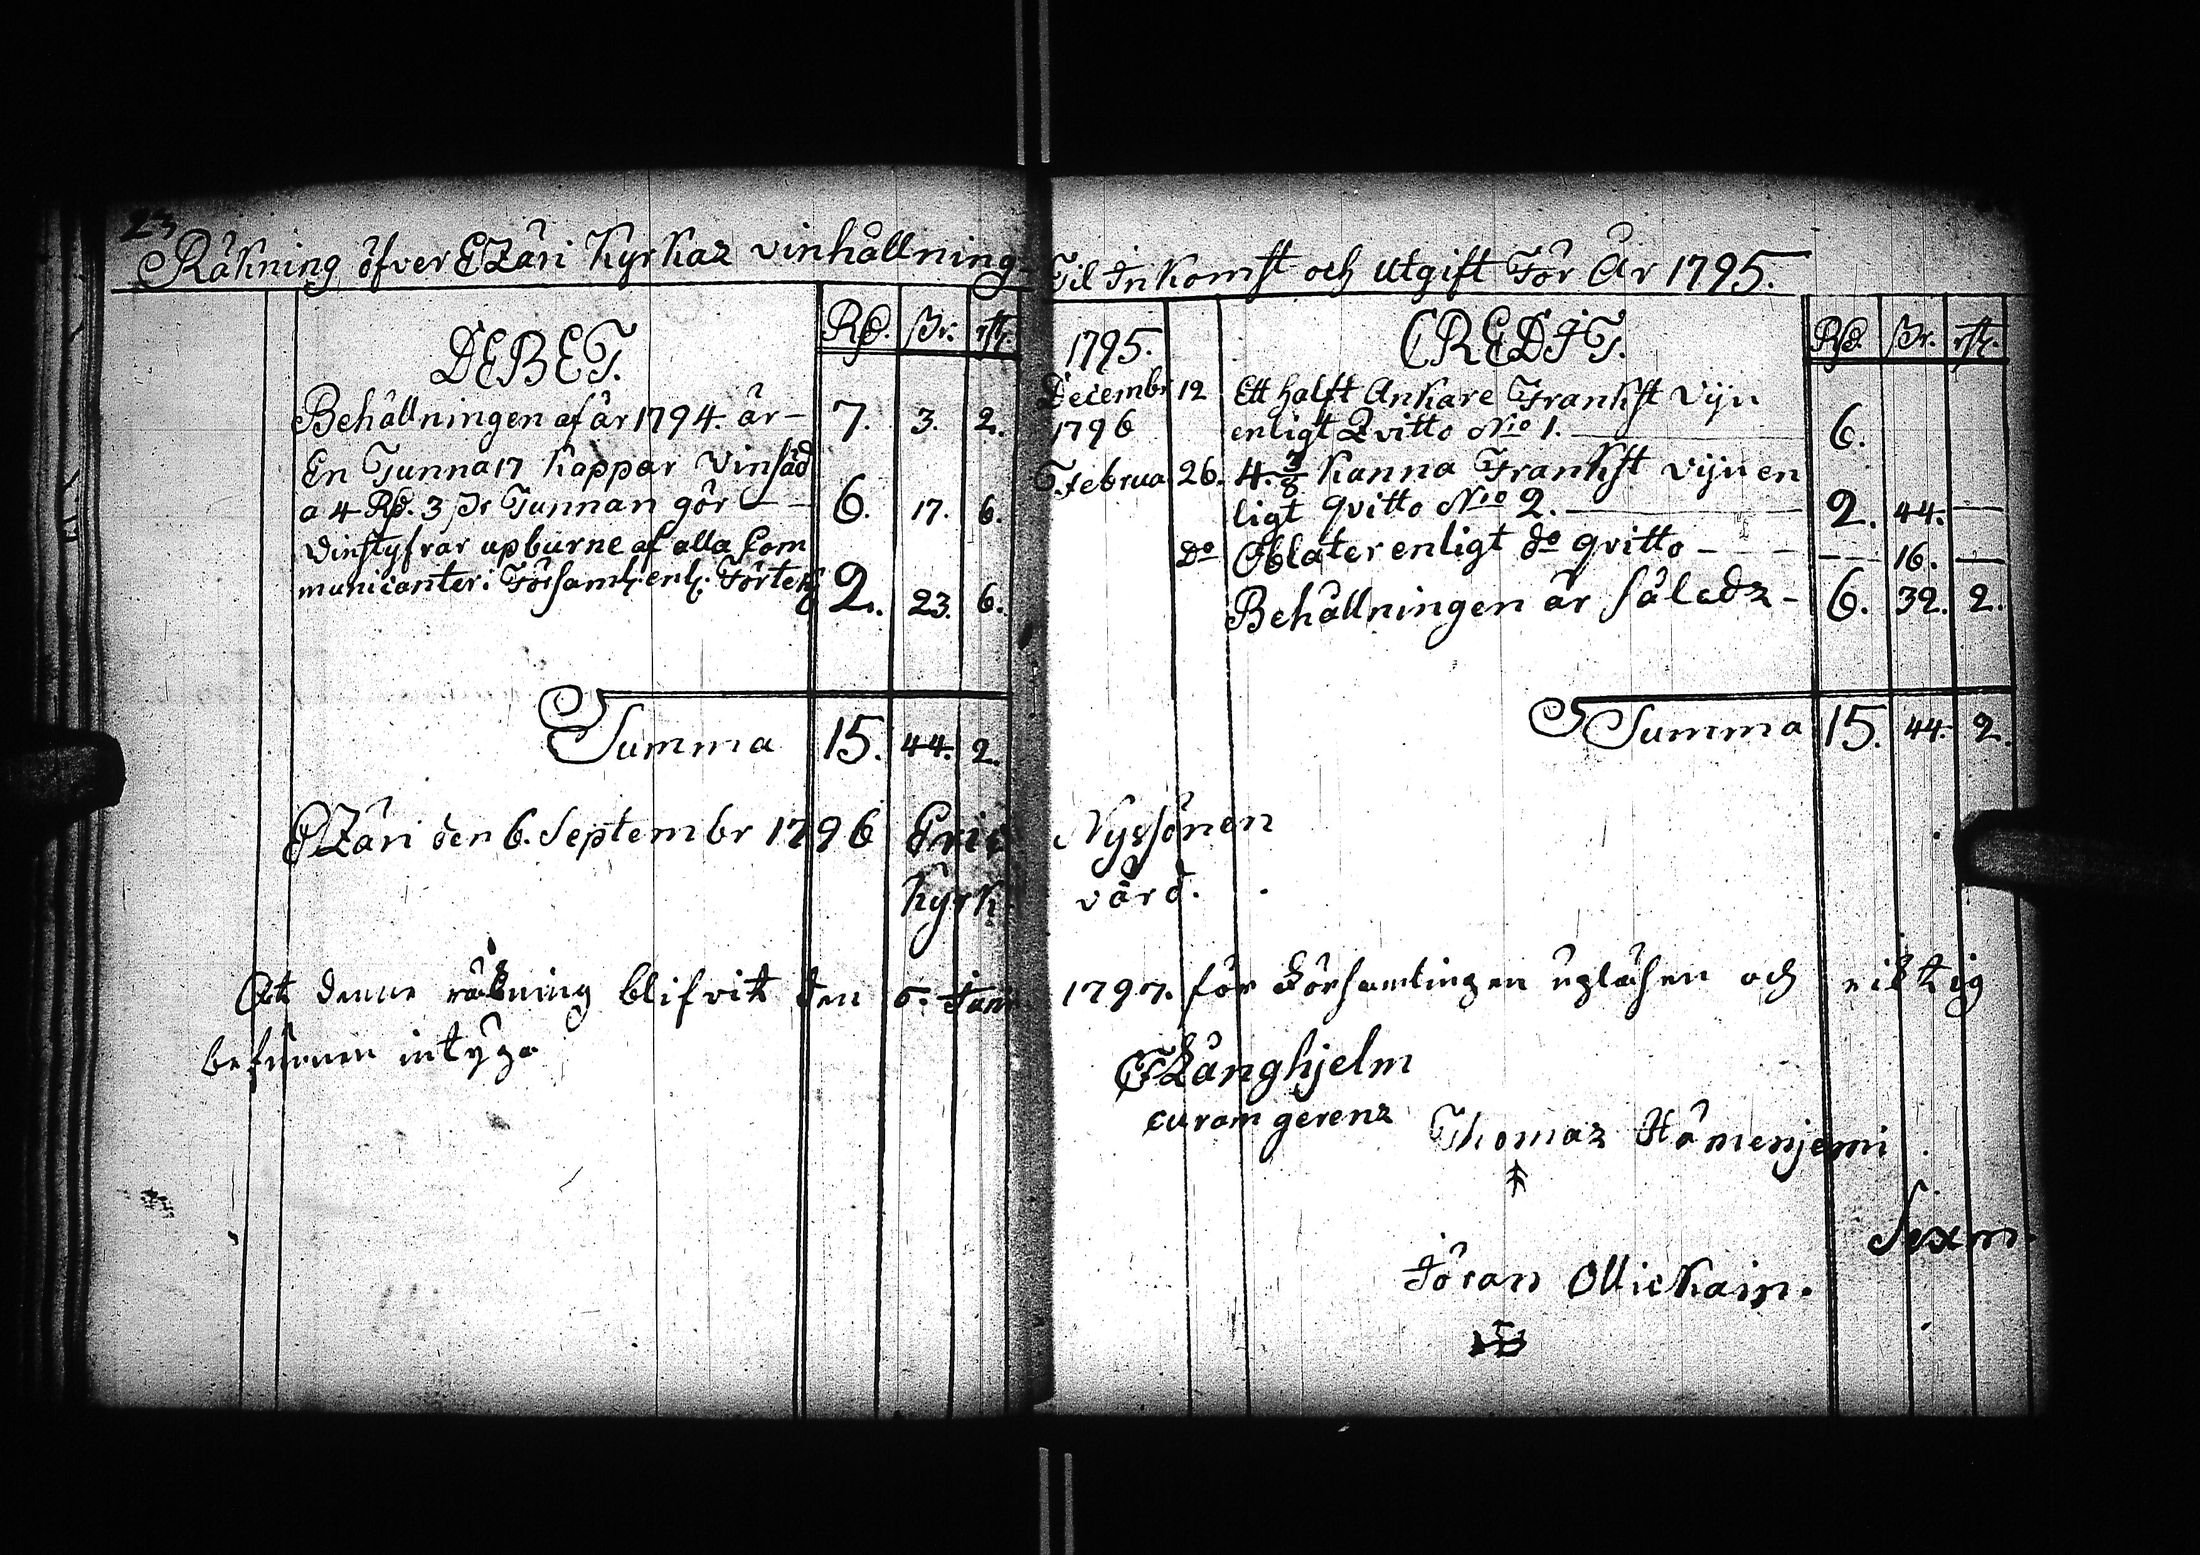 23
Räkning öfver Ezäri Kyrkas vinhållning Til Inkomst och utgift För År 1795.
DEBET. Rd. sk. rst.
Behållningen af år 1794. är — 7. 3. 2.
En Tunna 17 Kappar Vinsäd
a 4 Rd. 3 sk Tunnan gör — 6. 17. 6.
Vinstyfrar upburne af alla Com
municanter i Församl. enl. Förtekn 2. 23. 6.
Summa 15. 44. 2.
1795. CREDIT. Rd. sk. rst.
Decembr 12 Ett halft Ankare Franskt Vijn
1796 enligt Qvitto No 1. — 6.
Februa 26. 4. 3/8 Kanna Franskt vijn en
ligt qvitto No 2. — 2. 44. —
Do Oblater enligt do qvitto — — 16. —
Behållningen är således — 6. 32. 2.
Summa 15. 44. 2.
Ezäri den 6. Septembr 1796 Eric Nyssönen
Kyrk. värd.
At denne räkning blifvit den 6. Jan. 1797. för Församlingen upläsen och riktig
befunnen intyga
Långhjelm
curam gerens
Thomas Hämenjemi
Sexm.
Jöran Ollickain.